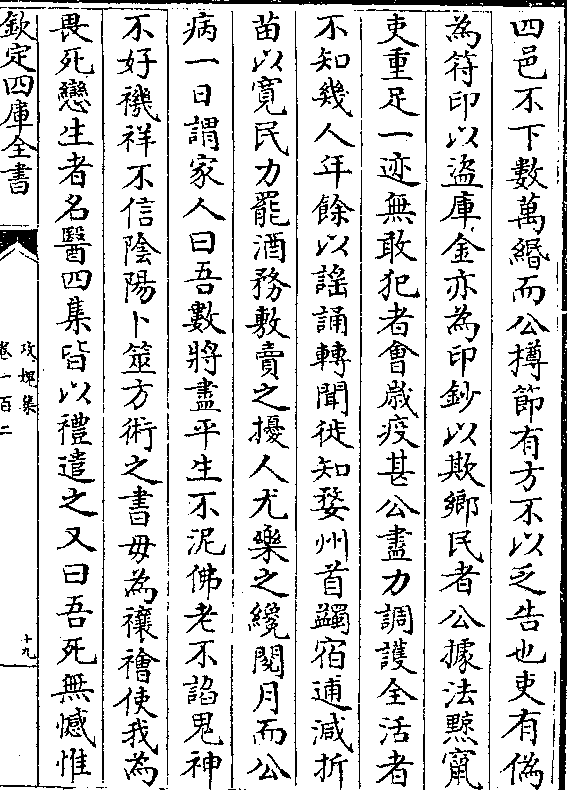 四邑不下數萬緡而公撙節有方不以乏告也吏有偽
為符印以盜庫金亦為印鈔以欺鄉民者公據法黥竄
吏重足一迹無敢犯者會歳疫甚公盡力調護全活者
不知幾人年餘以謡誦轉聞徙知婺州首蠲宿逋減折
苗以寛民力罷酒務敷賣之擾人尤樂之纔閲月而公
病一日謂家人曰吾數將盡平生不泥佛老不諂鬼神
不好禨祥不信陰陽卜筮方術之書毋為禳禬使我為
畏死戀生者名醫四集皆以禮遣之又曰吾死無憾惟
欽定四庫全書
攻媿集
卷一百二
十九